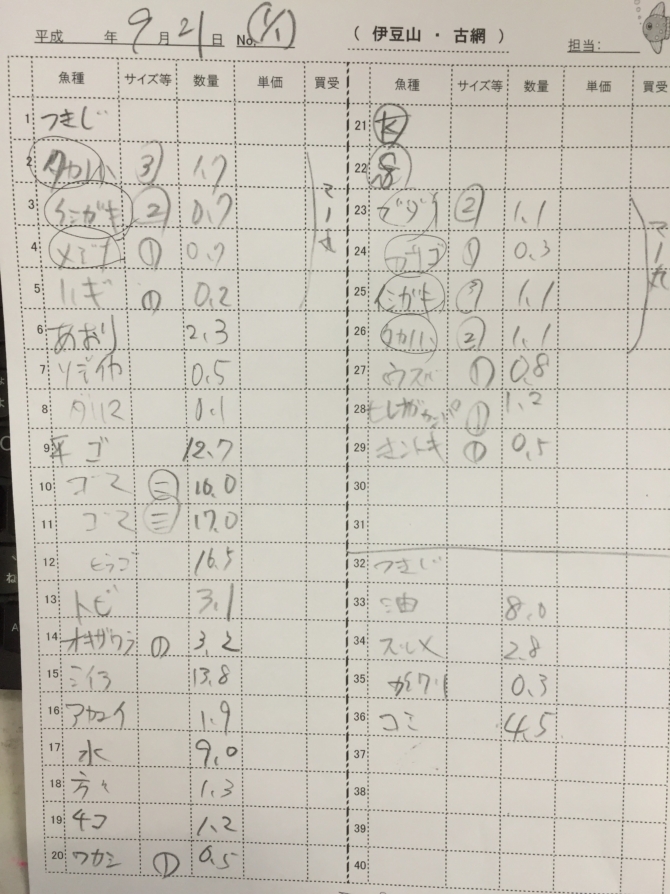 平成 年 9月 21日 No. (1/1) ( 伊豆山 ・ 古網 ) 担当:
魚種 サイズ等 数量 単価 買受
1 つきじ
2 タカノハ ③ 1.7
3 イシガキ ② 0.7 マー丸
4 メジナ ① 0.7
5 ハギ ① 0.2
6 あおり 2.3
7 ソデイカ 0.5
8 0.1
9 平ゴ 12.7
10 ゴマ ㊁ 16.0
11 ゴマ ㊂ 17.0
12 ヒラゴ 16.5
13 トビ 3.1
14 オキザワラ ① 3.2
15 シイラ 13.8
16 アカエイ 1.9
17 水 9.0
18 方々 1.3
19 チコ 1.2
20 ワカシ ① 0.5
魚種 サイズ等 数量 単価 買受
21
22
23 ブダイ ② 1.1
24 ① 0.3 マー丸
25 イシガキ ③ 1.1
26 タカノハ ② 1.1
27 ウスバ ① 0.8
28 ① 1.2
29 ① 0.5
30
31
32 つきじ
33 油 8.0
34 スルメ 2.8
35 0.3
36 コミ 4.5
37
38
39
40